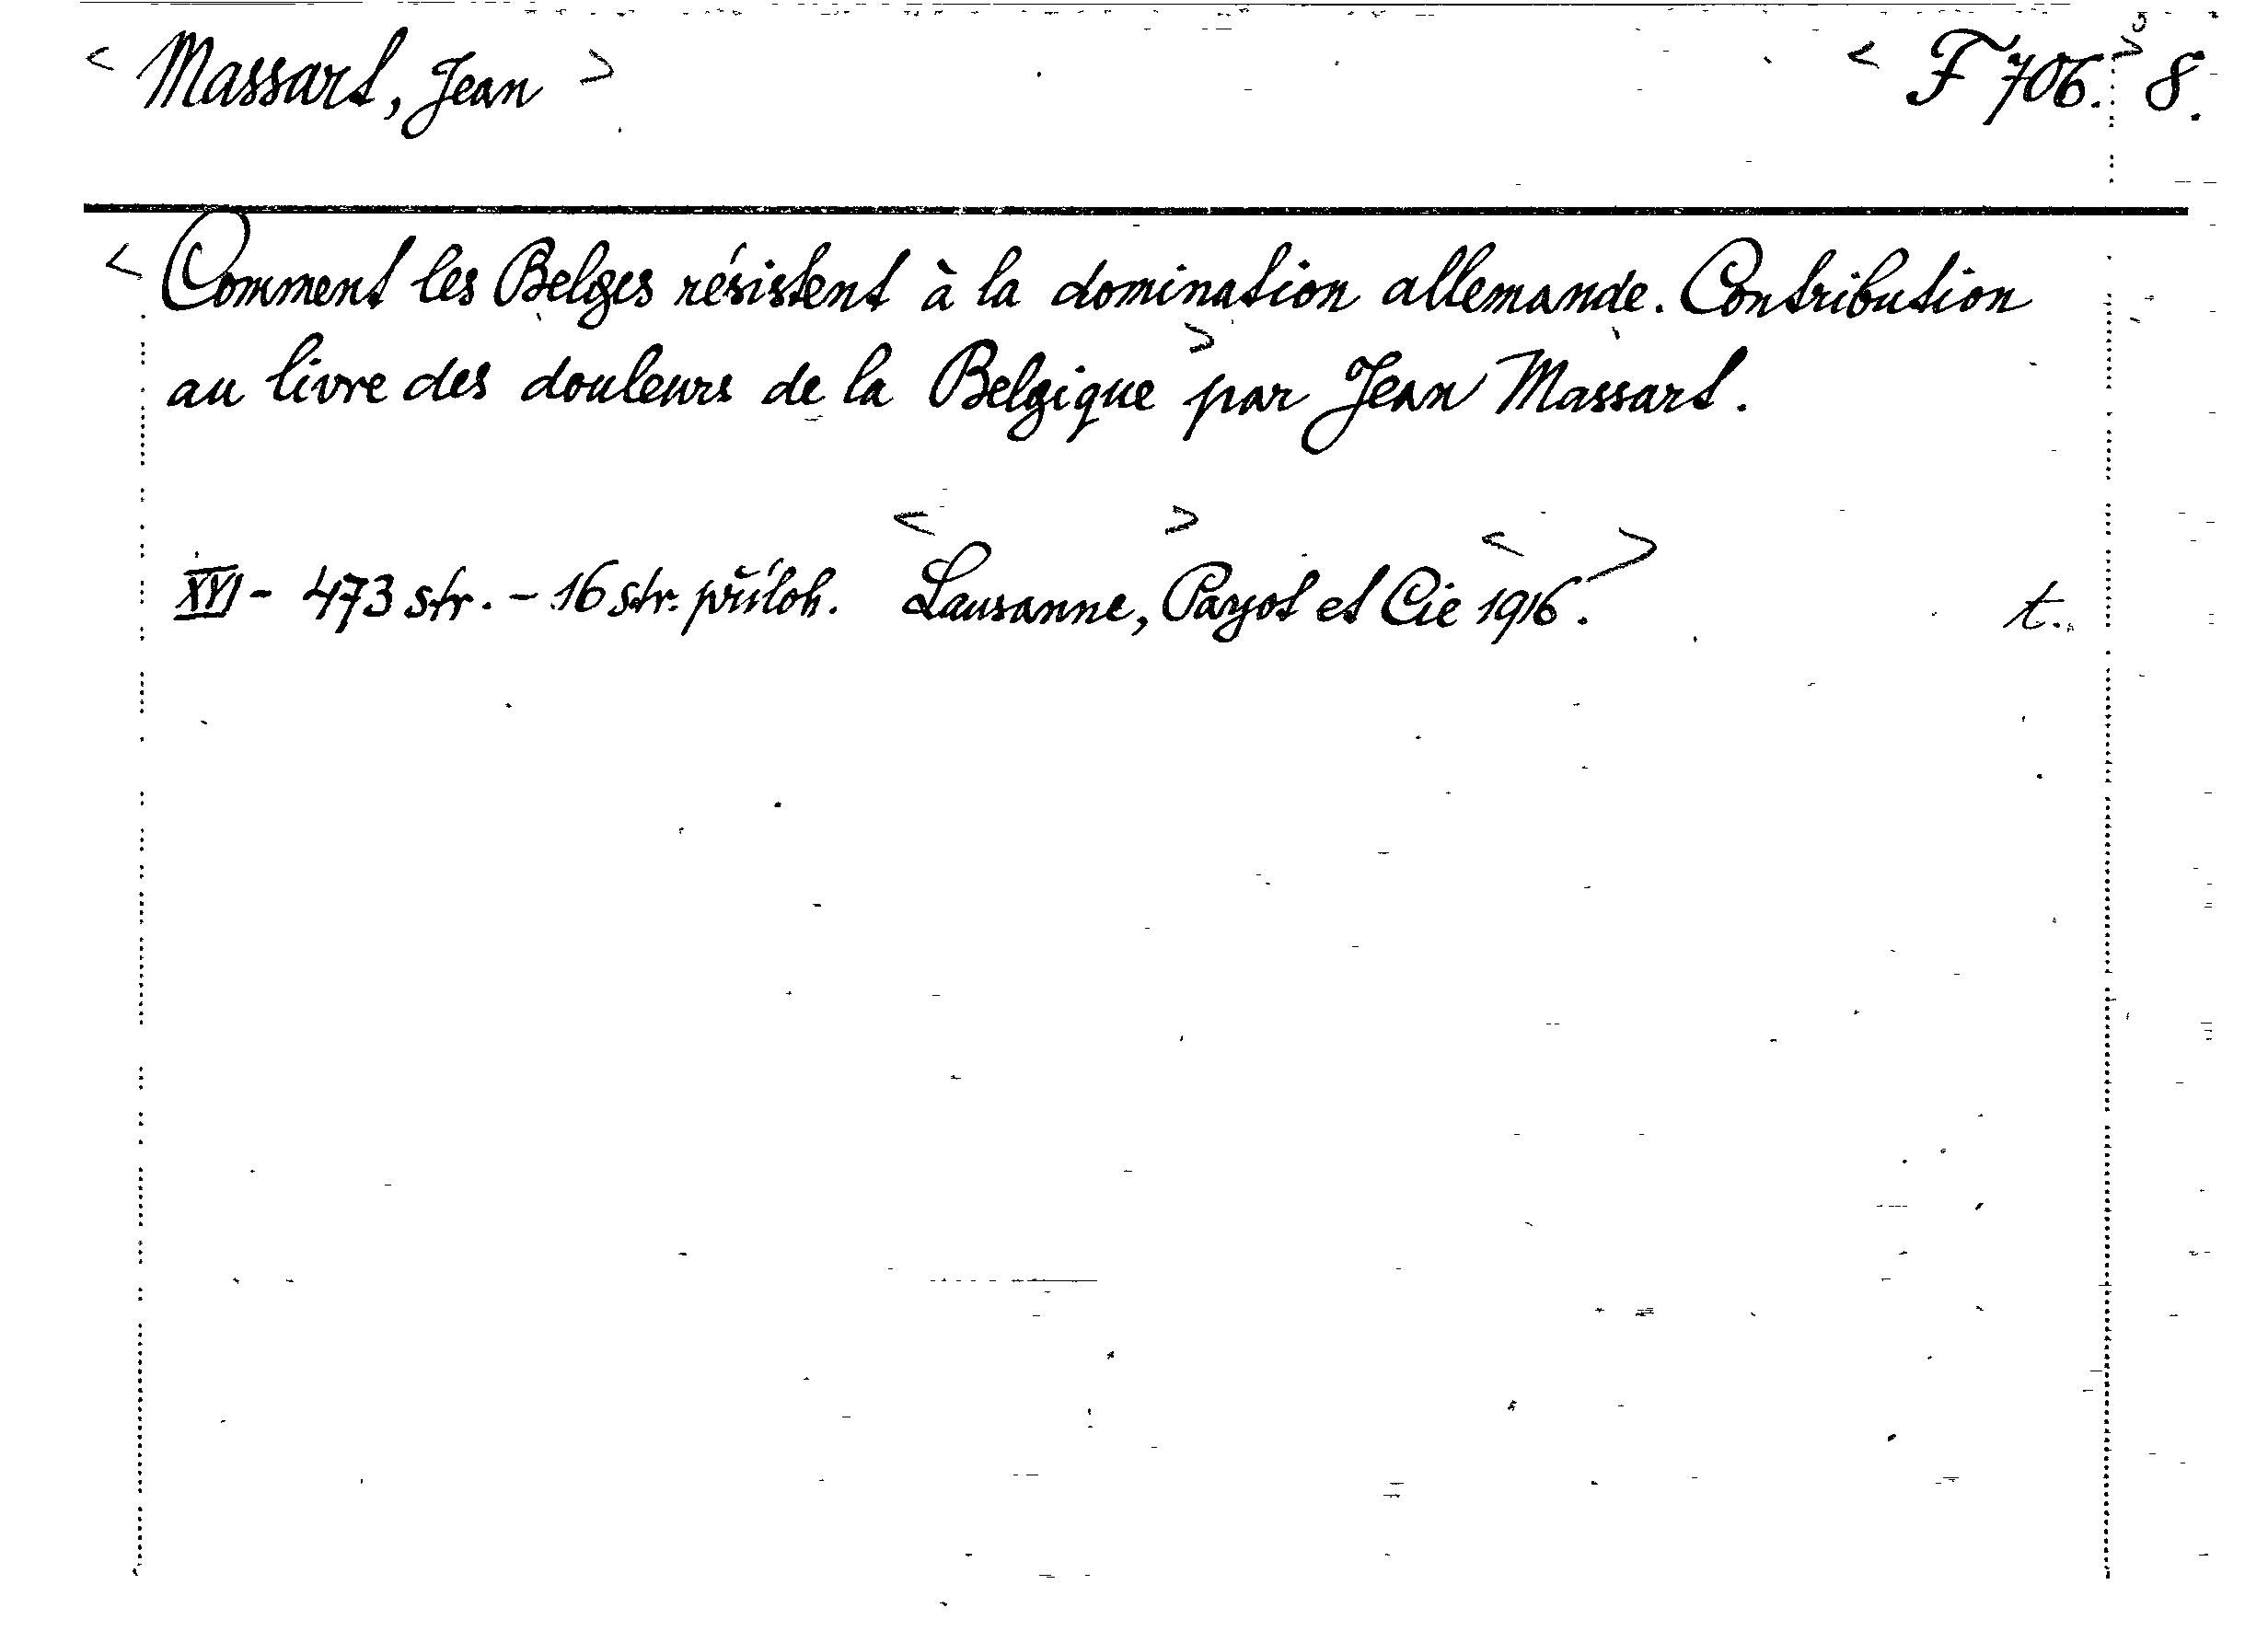 < Massart, Jean > < F 706. > 8.
< Comment les Belges résistent à la domination allemande. Contribution
au livre des douleurs de la Belgique > par Jean Massart.
XVI - 473 str. - 16 str. příloh. < Lausanne, > Payot et Cie < 1916. > t.